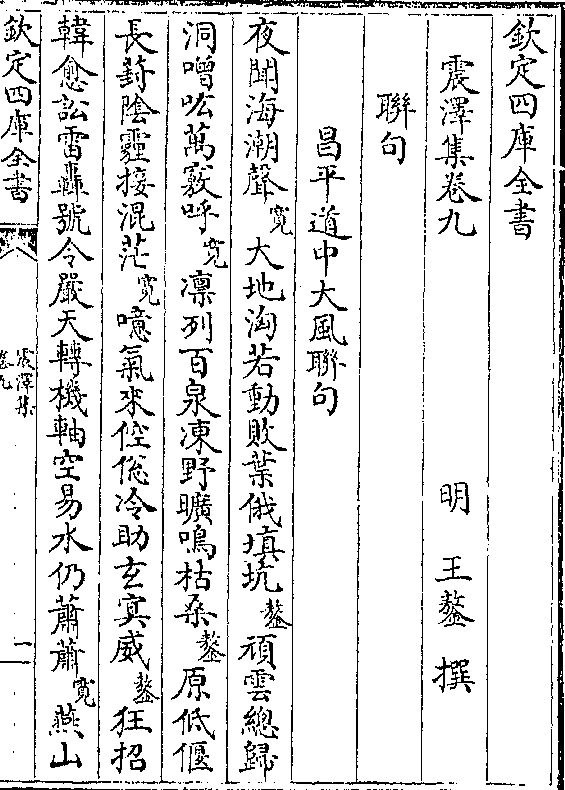 欽定四庫全書
震澤集卷九
明 王鏊 撰
聯句
昌平道中大風聯句
夜聞海潮聲寛大地洶若動敗葉俄填坑鏊頑雲總歸
洞噌吰萬竅呼寛凛列百泉凍野曠鳴枯桑鏊原低偃
長薪陰霾接混茫寛噫氣來倥偬冷助玄寞威鏊狂招
韓愈訟雷轟號令嚴天轉機軸空易水仍蕭蕭寛燕山
欽定四庫全書
震澤集
卷九
一